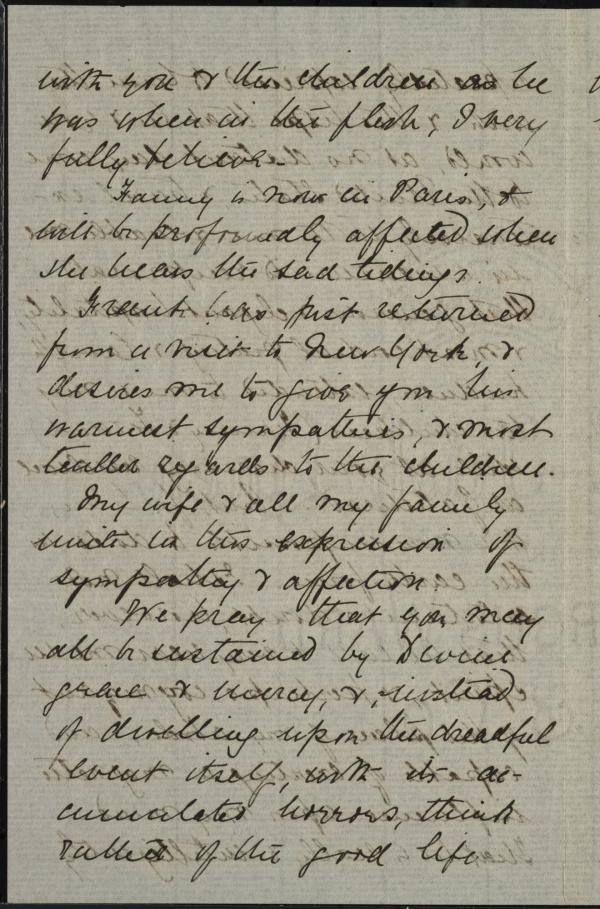 with you & the children as he
was when in the flesh, I very
fully believe.
Fanny is now in Paris, &
will be profoundly affected when
she hears the sad tidings.
Frank has just returned
from a visit to New York, &
desires me to give you his
warmest sympathies, & most
tender regards to the children.
My wife & all my family
unite in this expression of
sympathy & affection.
We pray that you may
all be sustained by Divine
grace & mercy, &, instead
of dwelling upon the dreadful
event itself, with its ac-
cumulated horrors, think
rather of the good life